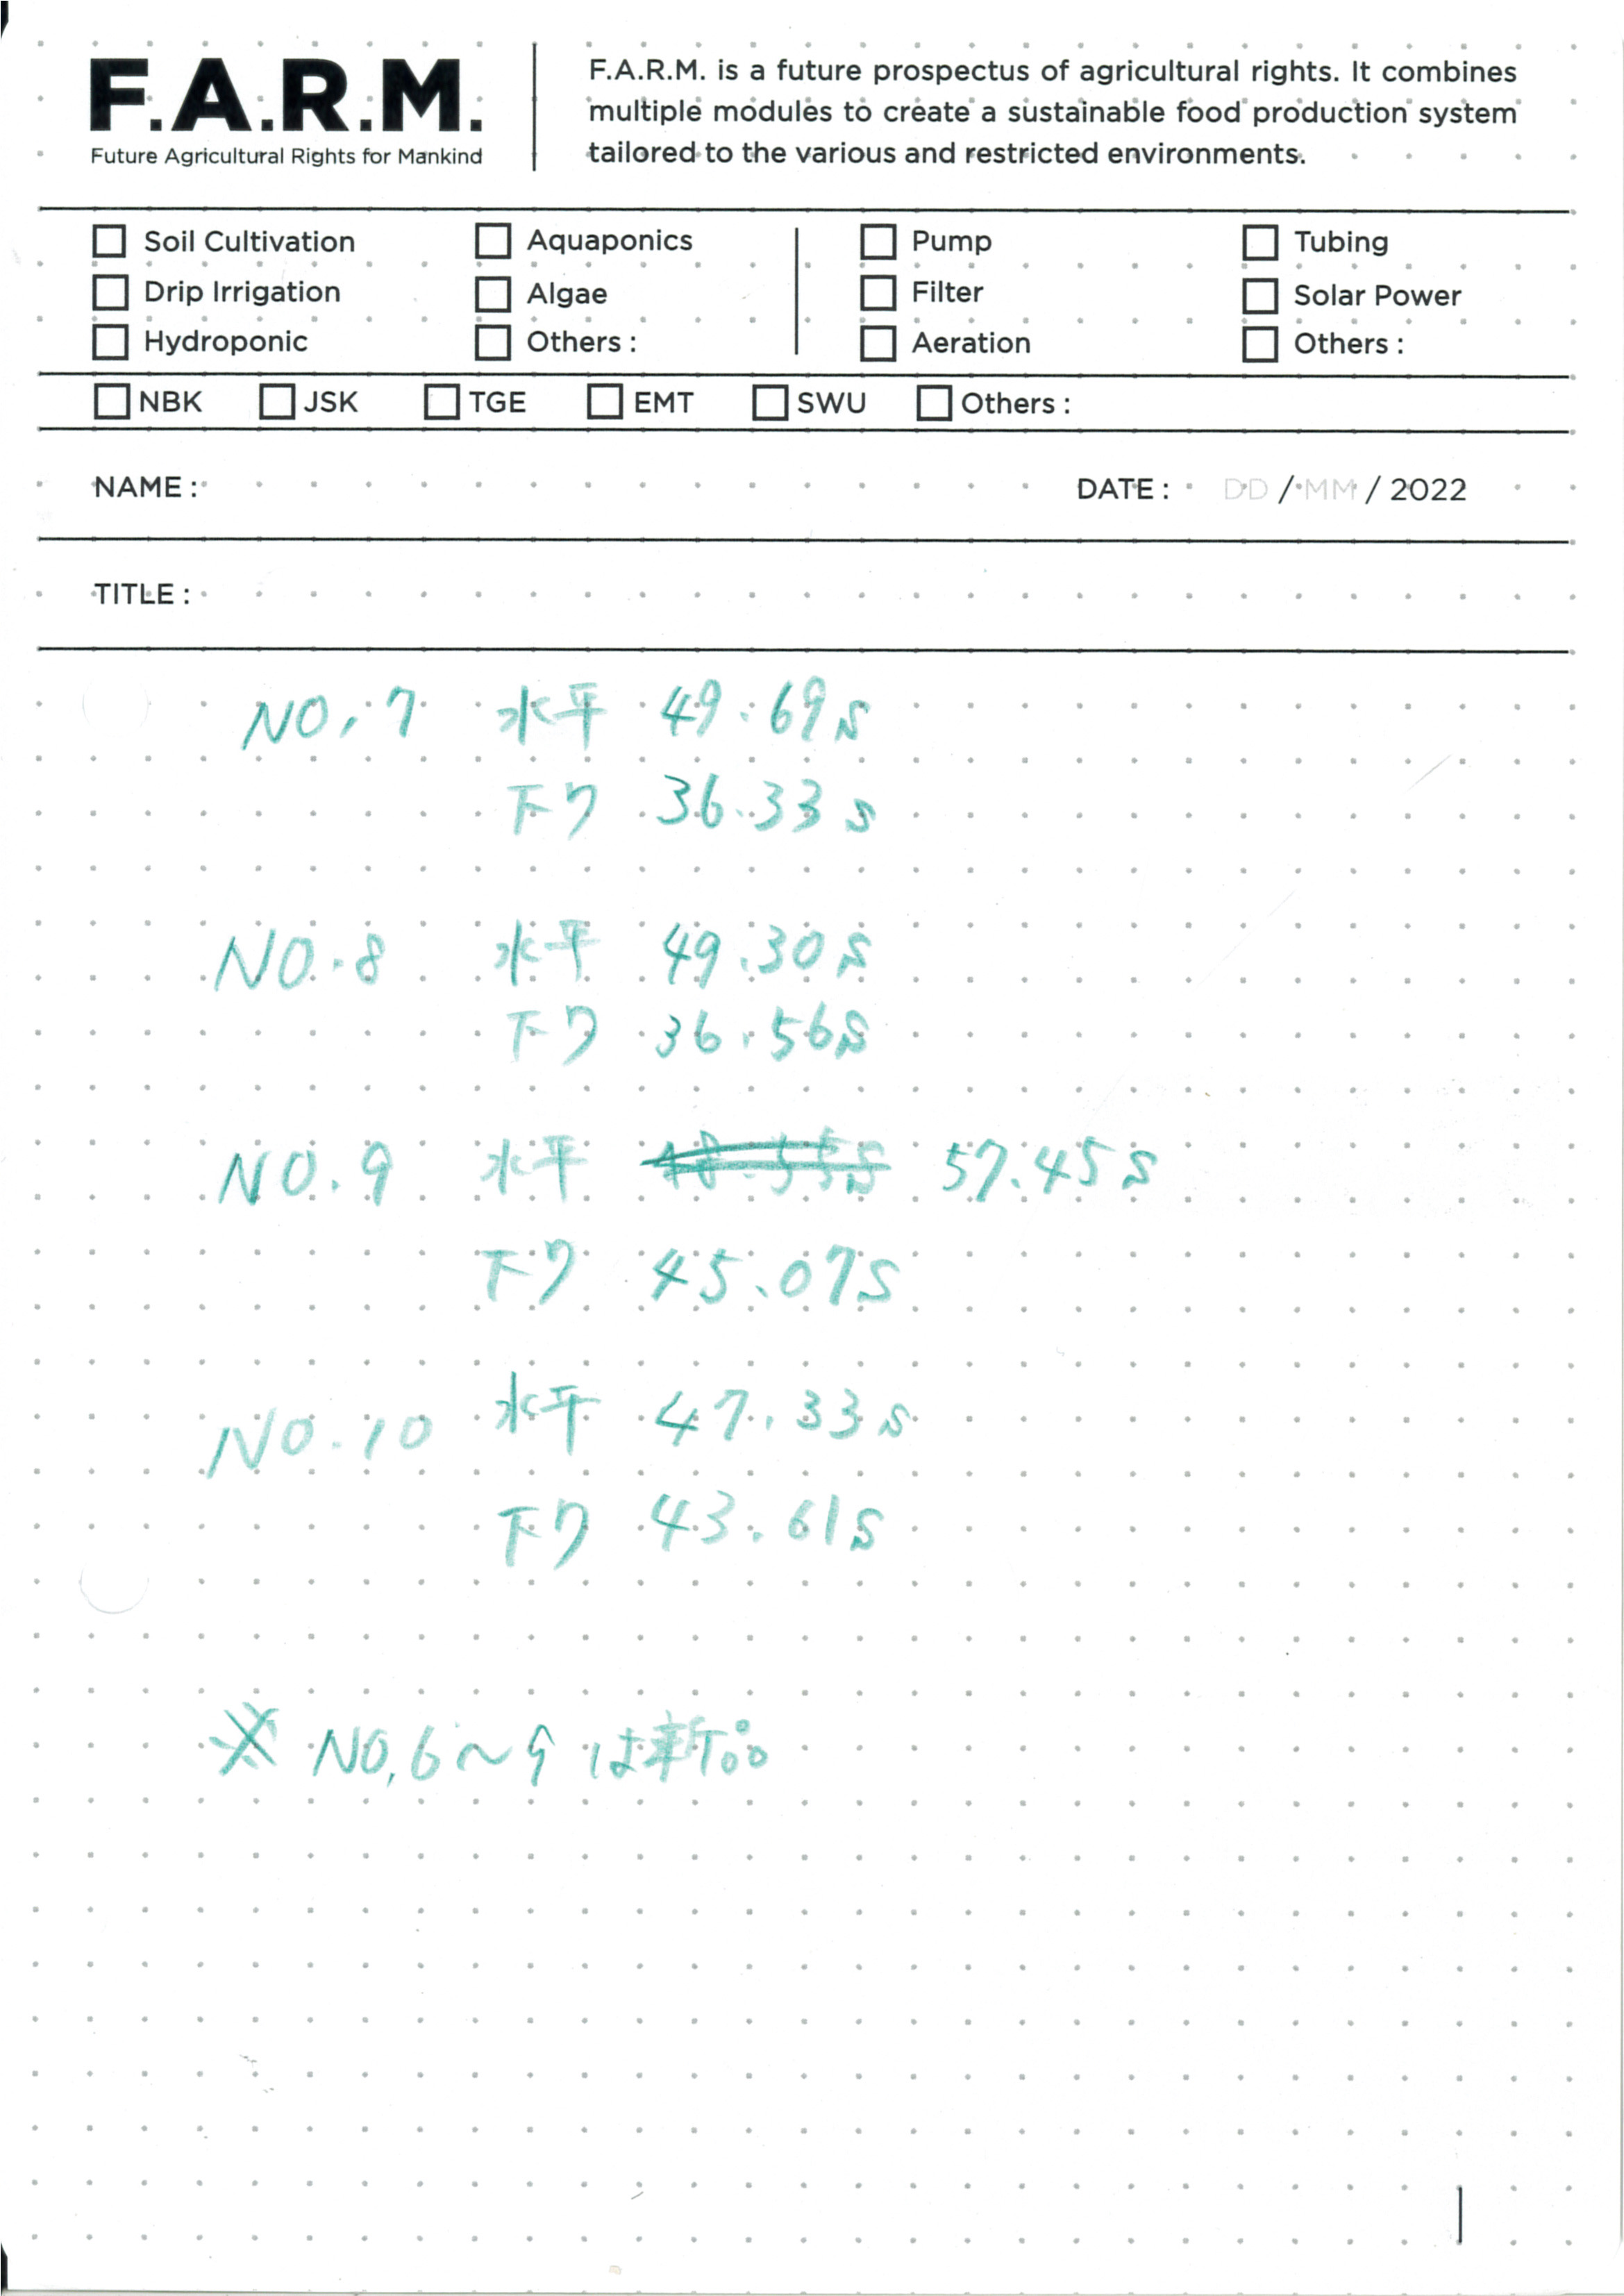 F.A.R.M.
Future Agricultural Rights for Mankind
F.A.R.M. is a future prospectus of agricultural rights. It combines
multiple modules to create a sustainable food production system
tailored to the various and restricted environments.
Soil Cultivation Aquaponics Pump Tubing
Drip Irrigation Algae Filter Solar Power
Hydroponic Others : Aeration Others :
NBK JSK TGE EMT SWU Others :
NAME : DATE : DD / MM / 2022
TITLE :
NO. 7 水平 49.69s
下り 36.33s
NO.8 水平 49.30s
下り 36.56s
NO.9 水平 57.45s
下り 45.07s
NO.10 水平 47.33s
下り 43.61s
※ NO.6~9は新品